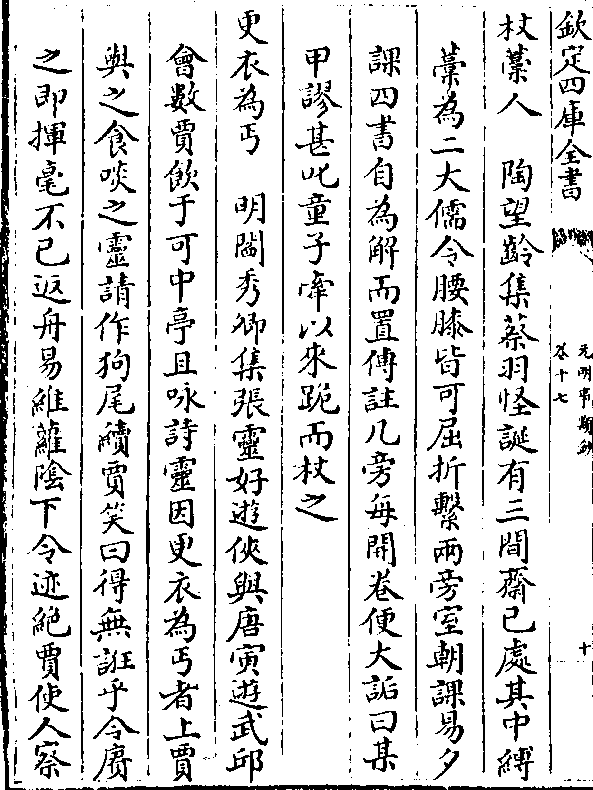 欽定四庫全書
元明事類鈔
卷十七
十
杖藁人　陶望齡集蔡羽怪誕有三間齋已處其中縛
藁為二大儒令腰膝皆可屈折繫兩旁室朝課易夕
課四書自為解而置傳註几旁每開卷便大詬曰某
甲謬甚叱童子牽以來跪而杖之
更衣為丐　明閩秀卿集張靈好遊俠與唐寅遊武邱
會數賈飲于可中亭且咏詩靈因更衣為丐者上賈
與之食啖之靈請作狗尾續賈笑曰得無誑乎令賡
之即揮毫不已返舟易維蘿陰下令迹絕賈使人察